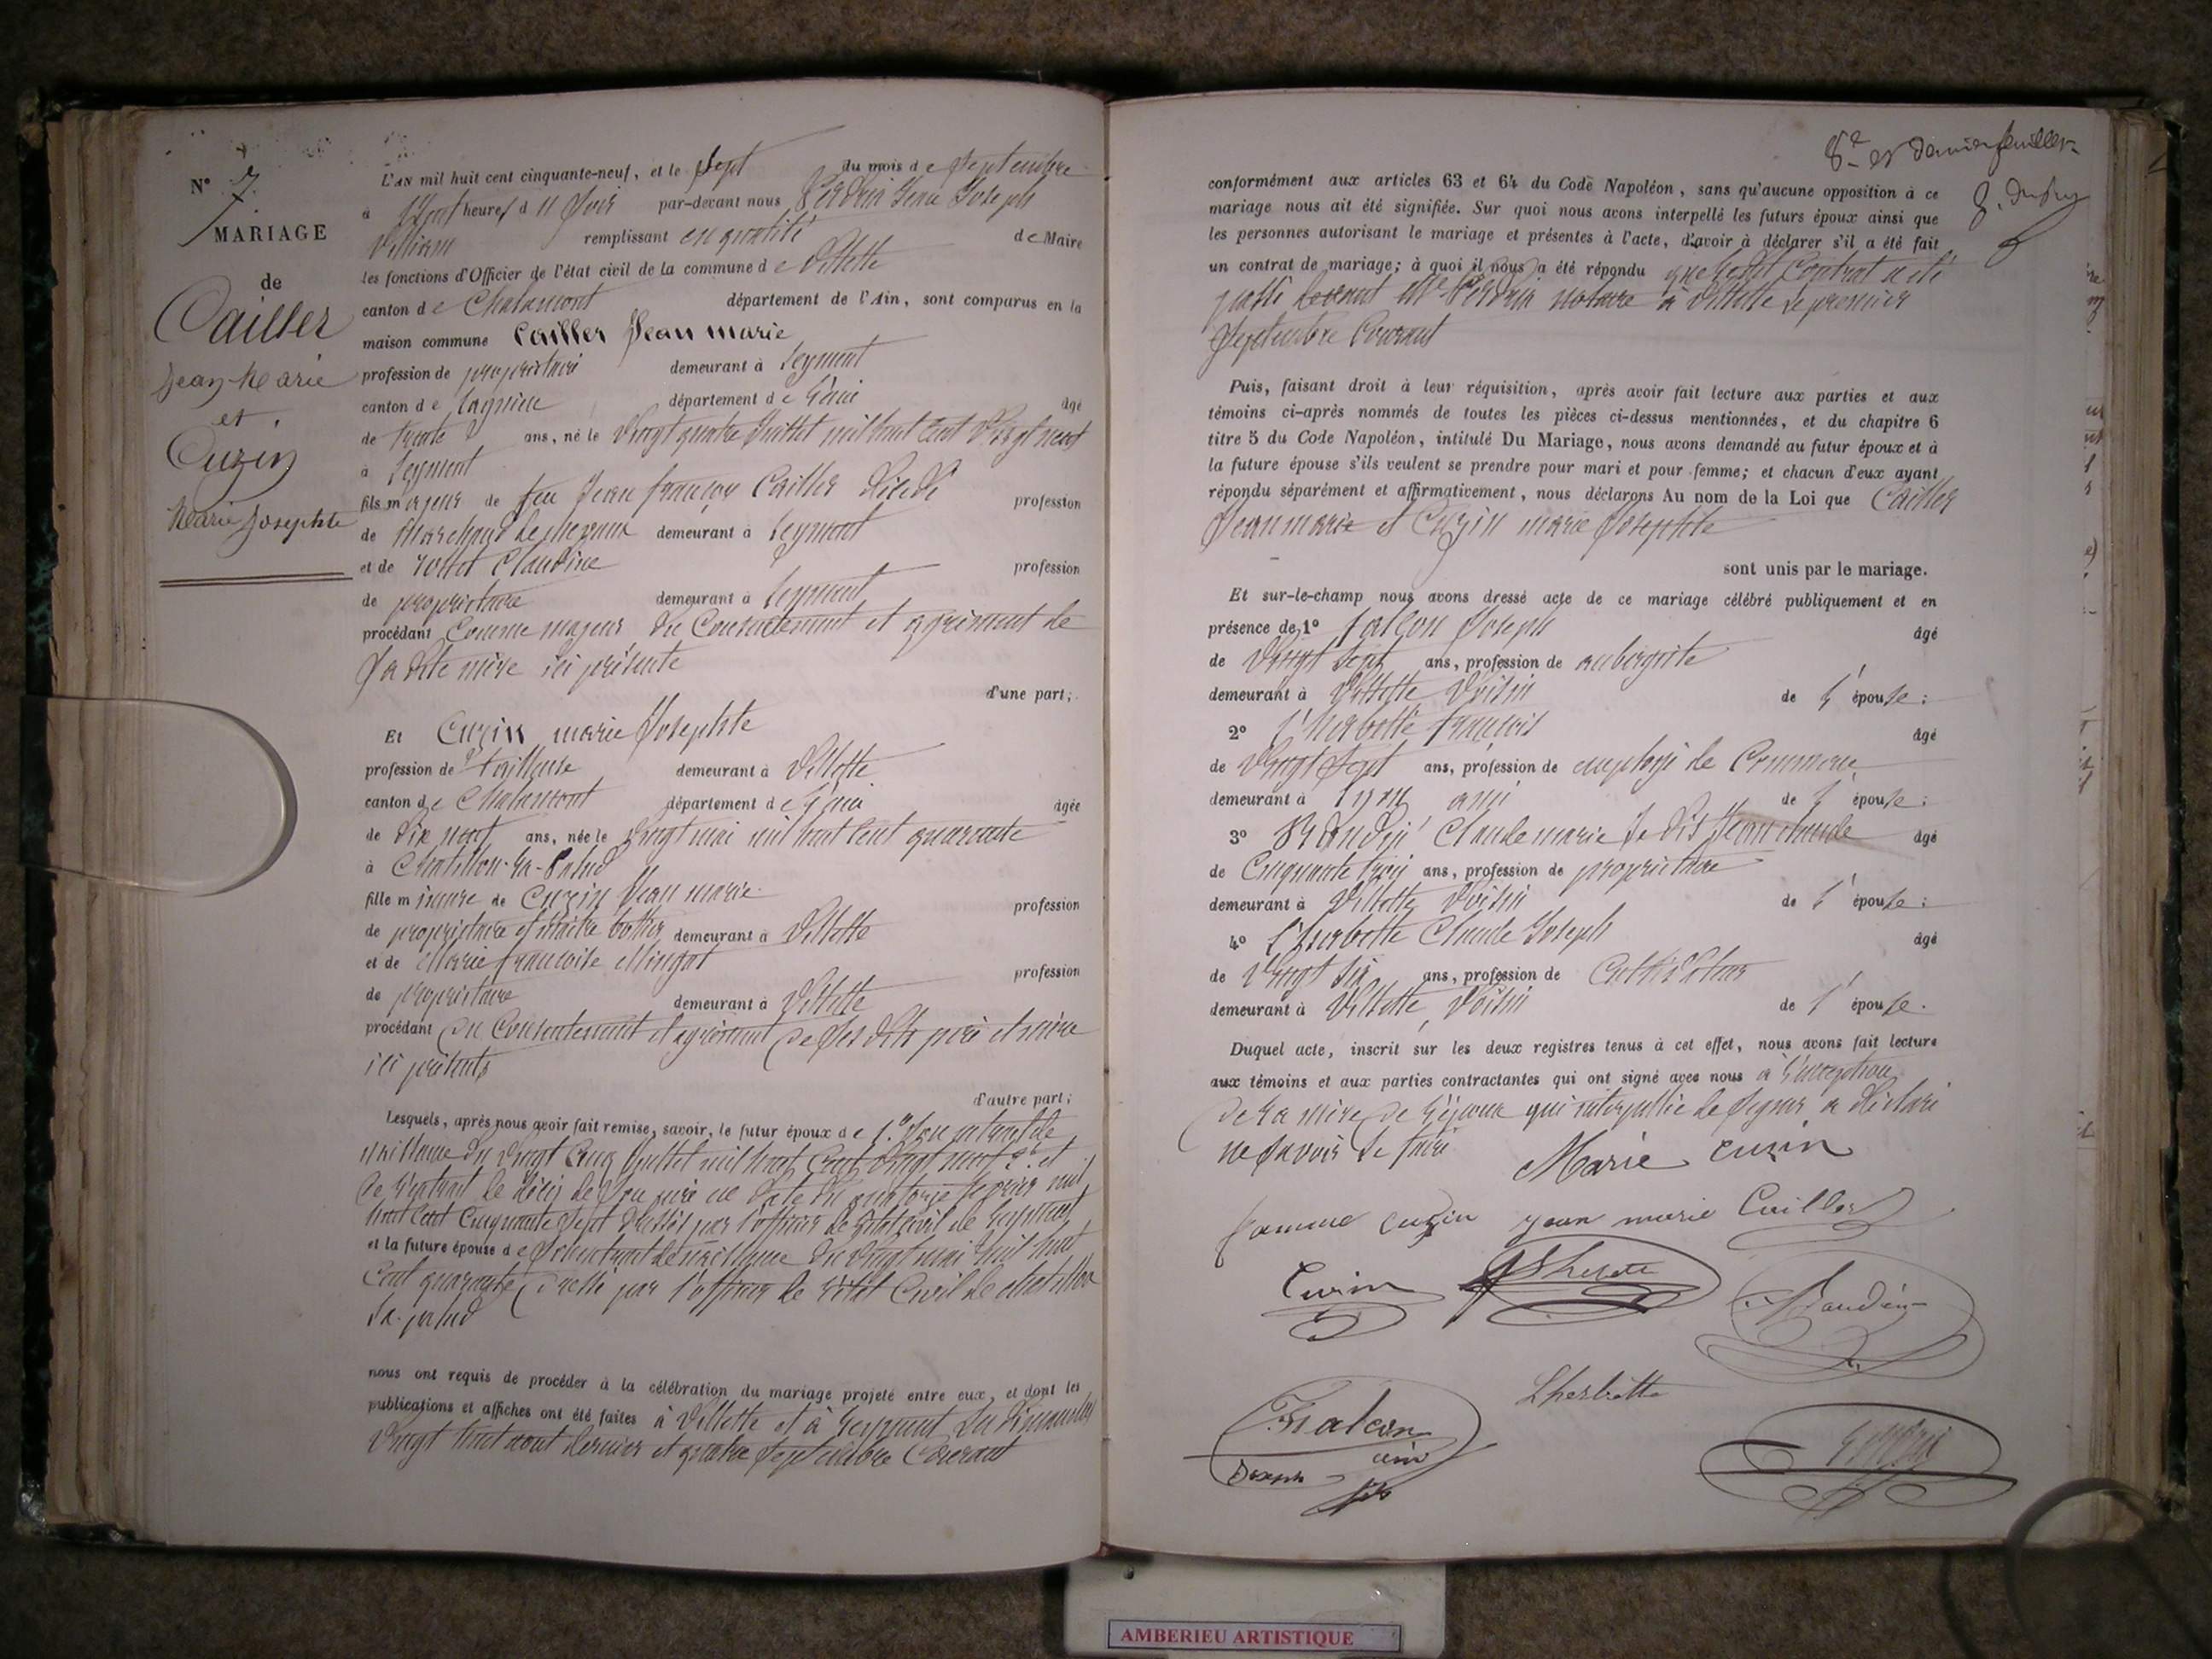 N° 7
MARIAGE
de
Cailler
Jean-Marie
et
Cuzin
Marie Josephte
L'AN mil huit cent cinquante-neuf, et le sept du mois de septembre
à heures du soir par-devant nous Joseph
remplissant en qualité de Maire
les fonctions d'Officier de l'état civil de la commune de Villette
canton de Chalamont département de l'Ain, sont comparus en la
maison commune Cailler Jean marie
profession de propriétaire demeurant à Leyment
canton de Lagnieu département de l'ain âgé
de trente ans, né le vingt quatre Juillet mil huit cent vingt neuf
à Leyment
fils majeur de feu Jean françois Cailler décédé profession
de marchand de chevaux demeurant à Leyment
et de Claudine profession
de propriétaire demeurant à Leyment
procédant comme majeur du Consentement et agrément de
sa dite mère ici présente
d'une part;
Et Cuzin marie Josephte
profession de tailleuse demeurant à Villette
canton de Chalamont département de l'ain âgée
de dix neuf ans, née le vingt mai mil huit cent quarante
à Chatillon-la-Palud
fille mineure de Cuzin Jean marie profession
de propriétaire et maître bottier demeurant à Villette
et de Marie françoise profession
de propriétaire demeurant à Villette
procédant du Consentement et agrément de ses dits père et mère
ici présents
d'autre part;
Lesquels, après nous avoir fait remise, savoir, le futur époux de 1.° son extrait de
naissance du vingt cinq Juillet mil huit cent vingt neuf 2.° et
de l'extrait de décès de son père en date du quatorze février mil
huit cent cinquante sept dressés par l'officier de l'état civil de Leyment
et la future épouse de son extrait de naissance du vingt mai mil huit
cent quarante dressé par l'officier de l'état Civil de chatillon
la-palud
nous ont requis de procéder à la célébration du mariage projeté entre eux, et dont les
publications et affiches ont été faites à Villette et à Leyment les dimanches
vingt huit aout dernier et quatre septembre Courant
8e et dernier feuillet
conformément aux articles 63 et 64 du Code Napoléon, sans qu'aucune opposition à ce
mariage nous ait été signifiée. Sur quoi nous avons interpellé les futurs époux ainsi que
les personnes autorisant le mariage et présentes à l'acte, d'avoir à déclarer s'il a été fait
un contrat de mariage; à quoi il nous a été répondu que ledit Contrat a été
passé devant Me notaire à Villette le premier
septembre Courant
Puis, faisant droit à leur réquisition, après avoir fait lecture aux parties et aux
témoins ci-après nommés de toutes les pièces ci-dessus mentionnées, et du chapitre 6
titre 5 du Code Napoléon, intitulé Du Mariage, nous avons demandé au futur époux et à
la future épouse s'ils veulent se prendre pour mari et pour femme; et chacun d'eux ayant
répondu séparément et affirmativement, nous déclarons Au nom de la Loi que Cailler
Jean marie et Cuzin marie Josephte
sont unis par le mariage.
Et sur-le-champ nous avons dressé acte de ce mariage célébré publiquement et en
présence de 1° falcon Joseph âgé
de vingt sept ans, profession de aubergiste
demeurant à Villette Voisin de l'épouse:
2° L'herbette françois âgé
de vingt sept ans, profession de employé de Commerce
demeurant à Lyon ami de l'épouse:
3° Claude marie dit Jean claude âgé
de Cinquante trois ans, profession de propriétaire
demeurant à Villette Voisin de l'épouse:
4° L'herbette Claude Joseph âgé
de vingt six ans, profession de Cultivateur
demeurant à Villette, Voisin de l'épouse.
Duquel acte, inscrit sur les deux registres tenus à cet effet, nous avons fait lecture
aux témoins et aux parties contractantes qui ont signé avec nous à l'exception
de la mère de l'époux qui interpellée de signer a déclaré
ne savoir le faire
Marie cuzin
famme cuzin jean marie Cailler
Cuzin
Lherbette
Falcon
Joseph
fils
AMBERIEU ARTISTIQUE